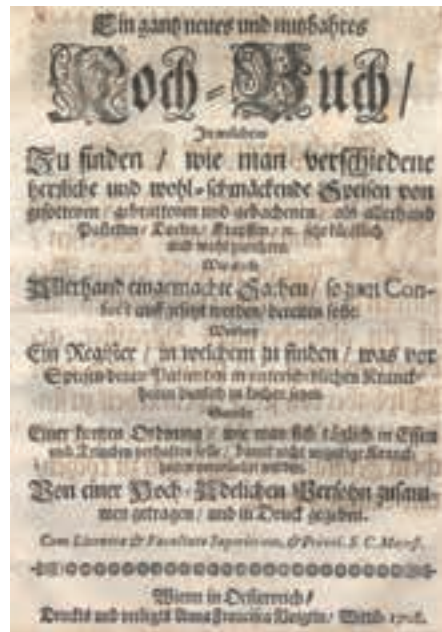 Ein gantz neues und nutzbahres
Koch-Buch/
In welchem
Zu finden / wie man verschiedene
herzliche und wohl-schmäckende Speisen von
gesottenen / gebrattenen und gebachenen / als allerhand
Pastetten / Krapffen / &c. sehr
und wohl
Wie auch
Allerhand eingemachte Sachen / so zum Con-
fect auff gesetzt werden / bereiten solle.
Ein Register / in welchem zu finden / was vor
Speisen denen Patienten in unterschidlichen Kranck-
heiten
Sambt
Einer kurtzen Ordnung / wie man sich täglich in Essen
und Trincken verhalten solle / damit nicht
werden.
Von einer Hoch-Adelichen Persohn zusam-
men getragen / und in Druck gegeben.
Cum Licentia & Facultate Superiorum, & Privil. S. C. Majest.
Wienn in Oesterreich /
Druckts und verlegts Anna Francisca Voigtin / Wittib